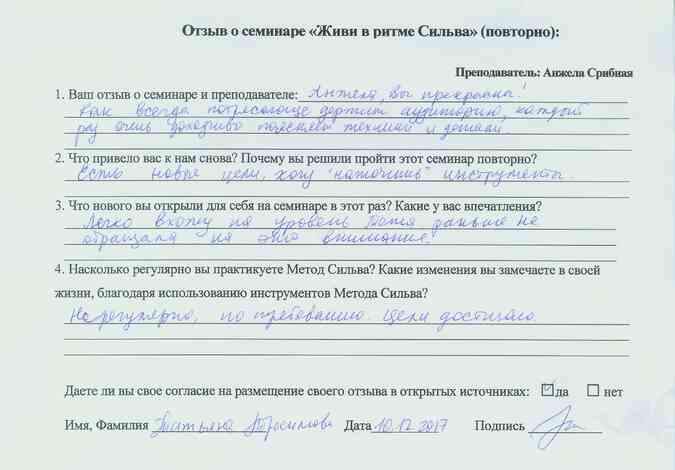 Отзыв о семинаре «Живи в ритме Сильва» (повторно):
Преподаватель: Анжела Срибная
1. Ваш отзыв о семинаре и преподавателе: Анжела, Вы прекрасны!
Как всегда потрясающе держит аудиторию, каждый
раз очень доходчиво объясняет техники и детали.
2. Что привело вас к нам снова? Почему вы решили пройти этот семинар повторно?
Есть новые цели, хочу "наточить" инструменты.
3. Что нового вы открыли для себя на семинаре в этот раз? Какие у вас впечатления?
Легко вхожу на уровень. Хотя раньше не
обращала на это внимание.
4. Насколько регулярно вы практикуете Метод Сильва? Какие изменения вы замечаете в своей
жизни, благодаря использованию инструментов Метода Сильва?
Не регулярно, по требованию. Цели достигаю.
Даете ли вы свое согласие на размещение своего отзыва в открытых источниках: да нет
Имя, Фамилия Татьяна Дата 10.12.2017 Подпись